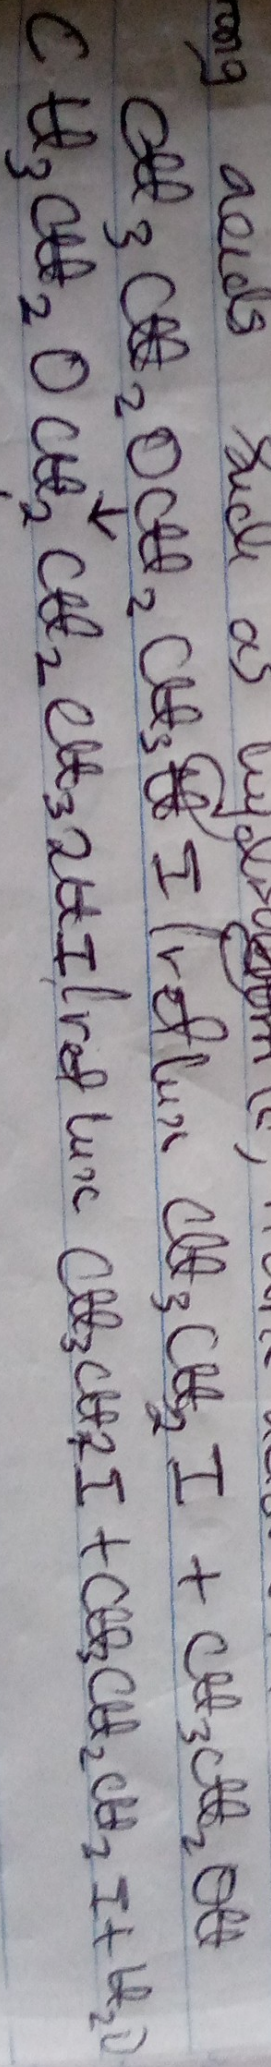 acids such as
CH3CH2OCH2CH3 HI/reflux CH3CH2I + CH3CH2OH
CH3CH2OCH2CH2CH3 2HI/reflux CH3CH2I + CH3CH2CH2I + H2O